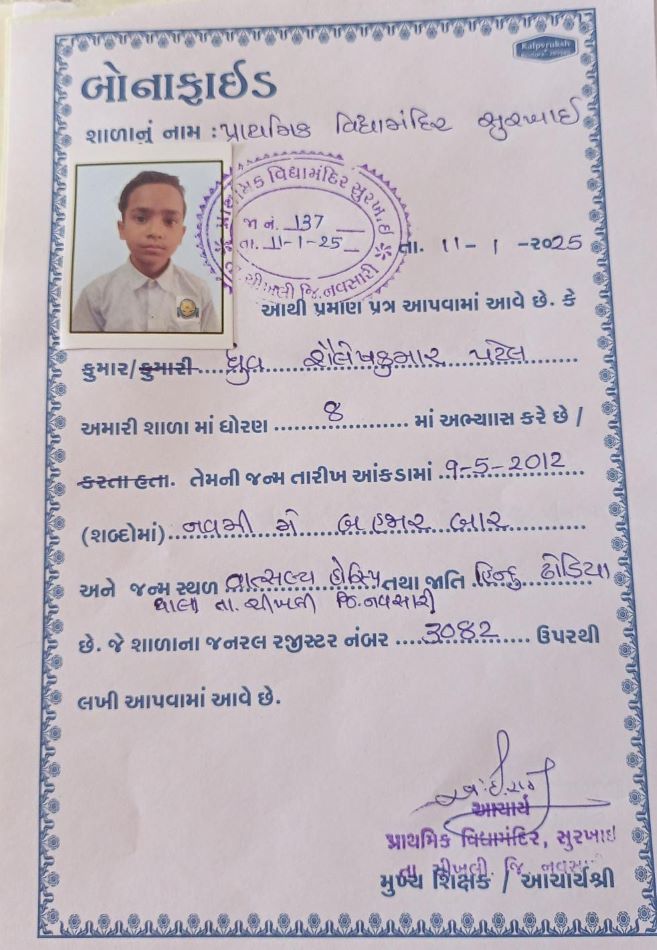 Kalpvruksh
બોનાફાઈડ
શાળાનું નામ : પ્રાથમિક વિદ્યામંદિર સુરખાઈ
પ્રાથમિક વિદ્યામંદિર સુરખાઈ
જા નં. 137
તા. 11-1-25
ચીખલી જિ. નવસારી
તા. 11 - 1 - ૨૦25
આથી પ્રમાણ પત્ર આપવામાં આવે છે. કે
કુમાર/કુમારી....ધ્રુવ શૈલેષકુમાર પટેલ
અમારી શાળા માં ધોરણ ....8.... માં અભ્યાસ કરે છે /
કરતા હતા. તેમની જન્મ તારીખ આંકડામાં .9-5-2012
(શબ્દોમાં)..નવમી મે બે હજાર બાર
અને જન્મ સ્થળ વાત્સલ્ય હોસ્પિ તથા જાતિ .હિન્દુ ઢોડિયા
થાલા તા. ચીખલી જિ. નવસારી
છે. જે શાળાના જનરલ રજીસ્ટર નંબર ....3082.... ઉપરથી
લખી આપવામાં આવે છે.
આચાર્ય
પ્રાથમિક વિદ્યામંદિર, સુરખાઇ
તા ચીખલી. જિ. નવસારી
મુખ્ય શિક્ષક / આચાર્યશ્રી